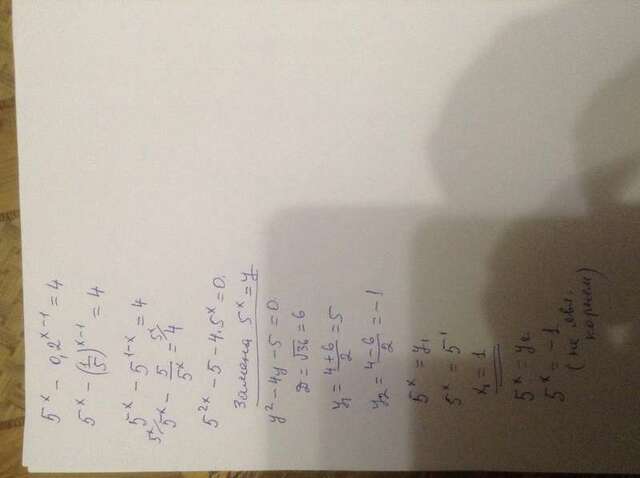 5^x - 0,2^{x-1} = 4
5^x - (1/5)^{x-1} = 4
5^x - 5^{1-x} = 4
5^x/ 5^x - 5/5^x = 5^x/ 4
5^{2x} - 5 - 4·5^x = 0.
Замена 5^x = y
y² - 4y - 5 = 0.
D = √36 = 6
y₁ = (4+6)/2 = 5
y₂ = (4-6)/2 = -1
5^x = y₁
5^x = 5^1
x₁ = 1
5^x = y₂
5^x = -1
(не явл.
корнем)